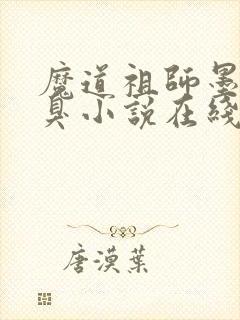 魔道祖師墨
臭小說在綫
唐漠葉